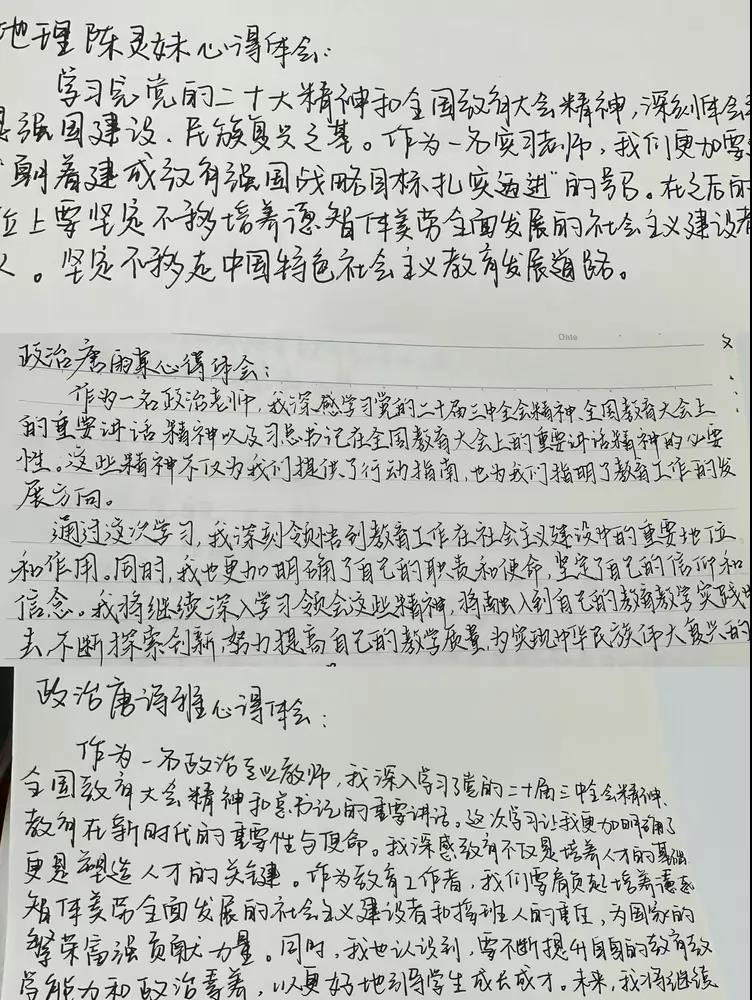 地理陈灵妹心得体会:
学习完党的二十大精神和全国教育大会精神,深刻体会
是强国建设、民族复兴之基。作为一名实习老师,我们更加要
"朝着建成教育强国战略目标扎实迈进"的号召。在之后的
位上要坚定不移培养德智体美劳全面发展的社会主义建设者
人。坚定不移走中国特色社会主义教育发展道路。
Date
政治唐雨某心得体会:
作为一名政治老师,我深感学习党的二十届三中全会精神、全国教育大会上
的重要讲话精神以及习总书记在全国教育大会上的重要讲话精神的必要
性。这些精神不仅为我们提供了行动指南,也为我们指明了教育工作的发
展方向。
通过这次学习,我深刻领悟到教育工作在社会主义建设中的重要地位
和作用。同时,我也更加明确了自己的职责和使命,坚定了自己的信仰和
信念。我将继续深入学习领会这些精神,将融入到自己的教育教学实践中
去,不断探索创新,努力提高自己的教学质量,为实现中华民族伟大复兴的
政治唐诗雅心得体会:
作为一名政治专业教师,我深入学习了党的二十届三中全会精神、
全国教育大会精神和总书记的重要讲话。这次学习让我更加明确了
教育在新时代的重要性与使命。我深感教育不仅是培养人才的基础
更是塑造人才的关键。作为教育工作者,我们需肩负起培养德
智体美劳全面发展的社会主义建设者和接班人的重任,为国家的
繁荣富强贡献力量。同时,我也认识到,要不断提升自身的教育教
学能力和政治素养,以更好地引导学生成长成才。未来,我将继续